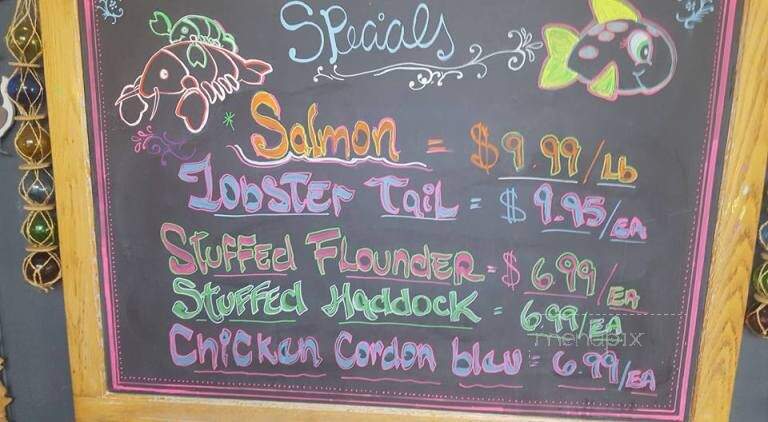 Specials
Salmon = $9.99/Lb
Lobster Tail = $9.95/EA
Stuffed Flounder = $6.99/EA
Stuffed Haddock = 6.99/EA
Chicken Cordon bleu = 6.99/EA
menupix